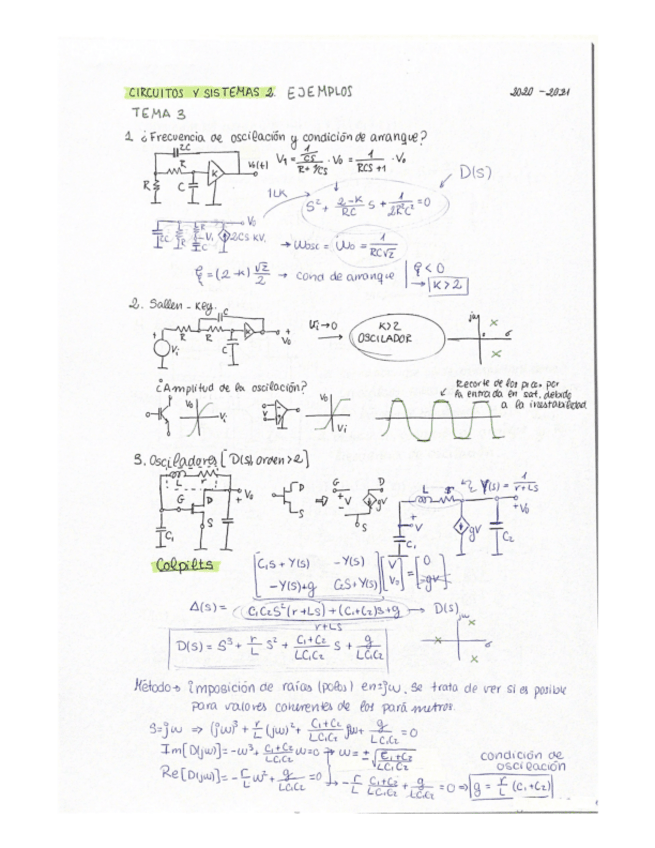 CIRCUITOS Y SISTEMAS 2. EJEMPLOS 2020-2021
TEMA 3
1. ¿Frecuencia de oscilación y condición de arranque?
2C
R
R
C
K
V₀(t)
V₁ = (1/CS)/(R+1/CS) · V₀ = 1/(RCS+1) · V₀
D(s)
1LK
S² + (2-K)/RC S + 1/(2R²C²) = 0
2C R R C V₁ 2CS KV₁ V₀
→ Wosc = W₀ = 1/(RC√2)
ξ = (2-K) √2/2 → cond de arranque | ξ < 0
→ K>2
2. Sallen-Key.
C
R R C
Vi
+ V₀
Vi→0
K>2
OSCILADOR
jω
σ
¿Amplitud de la oscilación?
Recorte de los picos por
la entrada en sat. debido
a la inestabilidad
V₀
Vi
V₀
Vi
3. Osciladores [D(s), orden>2]
L r
G D S
+ V₀
C₁
D S
G D
+ V - gV
S
L r Y(s) = 1/(r+Ls)
+ V C₁ gV C₂ + V₀
Colpitts
[C₁S+Y(s) -Y(s)
-Y(s)+g C₂S+Y(s)] [V
V₀] = [0
-gV]
Δ(s) = (C₁C₂S²(r+Ls)+(C₁+C₂)s+g)/(r+Ls) → D(s)
jω
D(s) = S³ + r/L S² + (C₁+C₂)/(LC₁C₂) S + g/(LC₁C₂)
Método → imposición de raías (polos) en=jω. Se trata de ver si es posible
para valores coherentes de los parámetros.
S=jω ⇒ (jω)³ + r/L (jω)² + (C₁+C₂)/(LC₁C₂) jω + g/(LC₁C₂) = 0
Im[D(jω)] = -ω³ + (C₁+C₂)/(LC₁C₂) ω = 0 → ω = ±√((C₁+C₂)/(LC₁C₂))
condición de
oscilación
Re[D(jω)] = -r/L ω² + g/(LC₁C₂) = 0 → -r/L (C₁+C₂)/(LC₁C₂) + g/(LC₁C₂) = 0 ⇒ g = r/L (C₁+C₂)